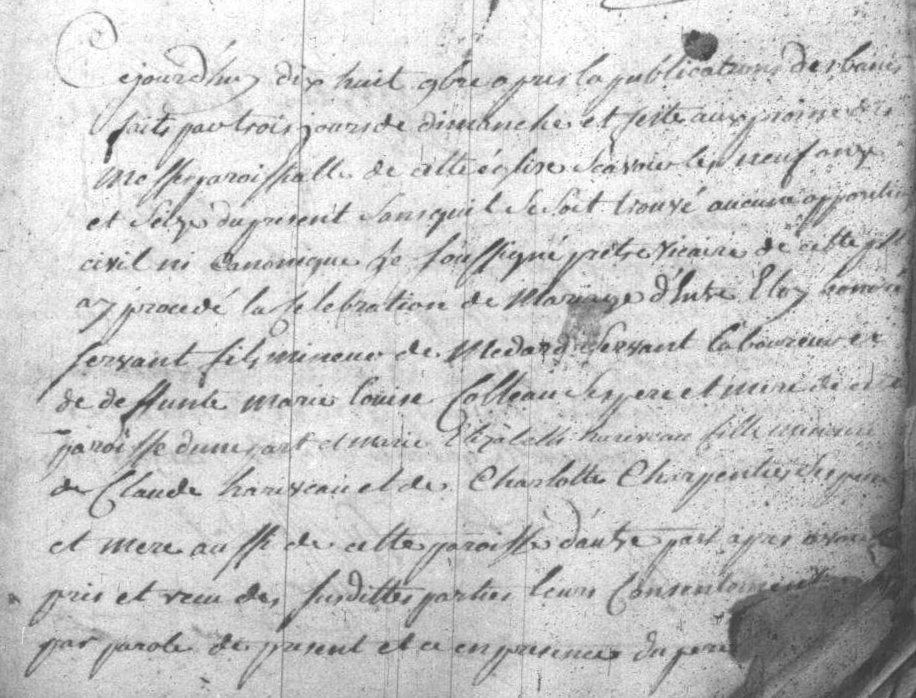 Cejourd'huy dix huit 9bre apres la publications des bans
faits par trois jours de dimanche et feste aux prosne des
Messe paroissialle de cette église scavoir les neuf onze
et seize du present sans quil se soit trouvé aucune opposition
civil ni Canonique Je soussigné prêtre vicaire de cette
ay procedé la selebration de Mariage d'Entre Eloy honoré
servant fils mineur de Medard Servant laboureur et
de deffunte marie louise Colleau ses pere et mere de cette
paroisse d'une part et marie Elizabeth hariveau fille mineure
de Claude hariveau et de Charlotte Charpentier ses pere
et mere aussi de cette paroisse d'autre part apres avoir
pris et receu des susdittes parties leurs Consentement
par parole de present et ce en presence du pere